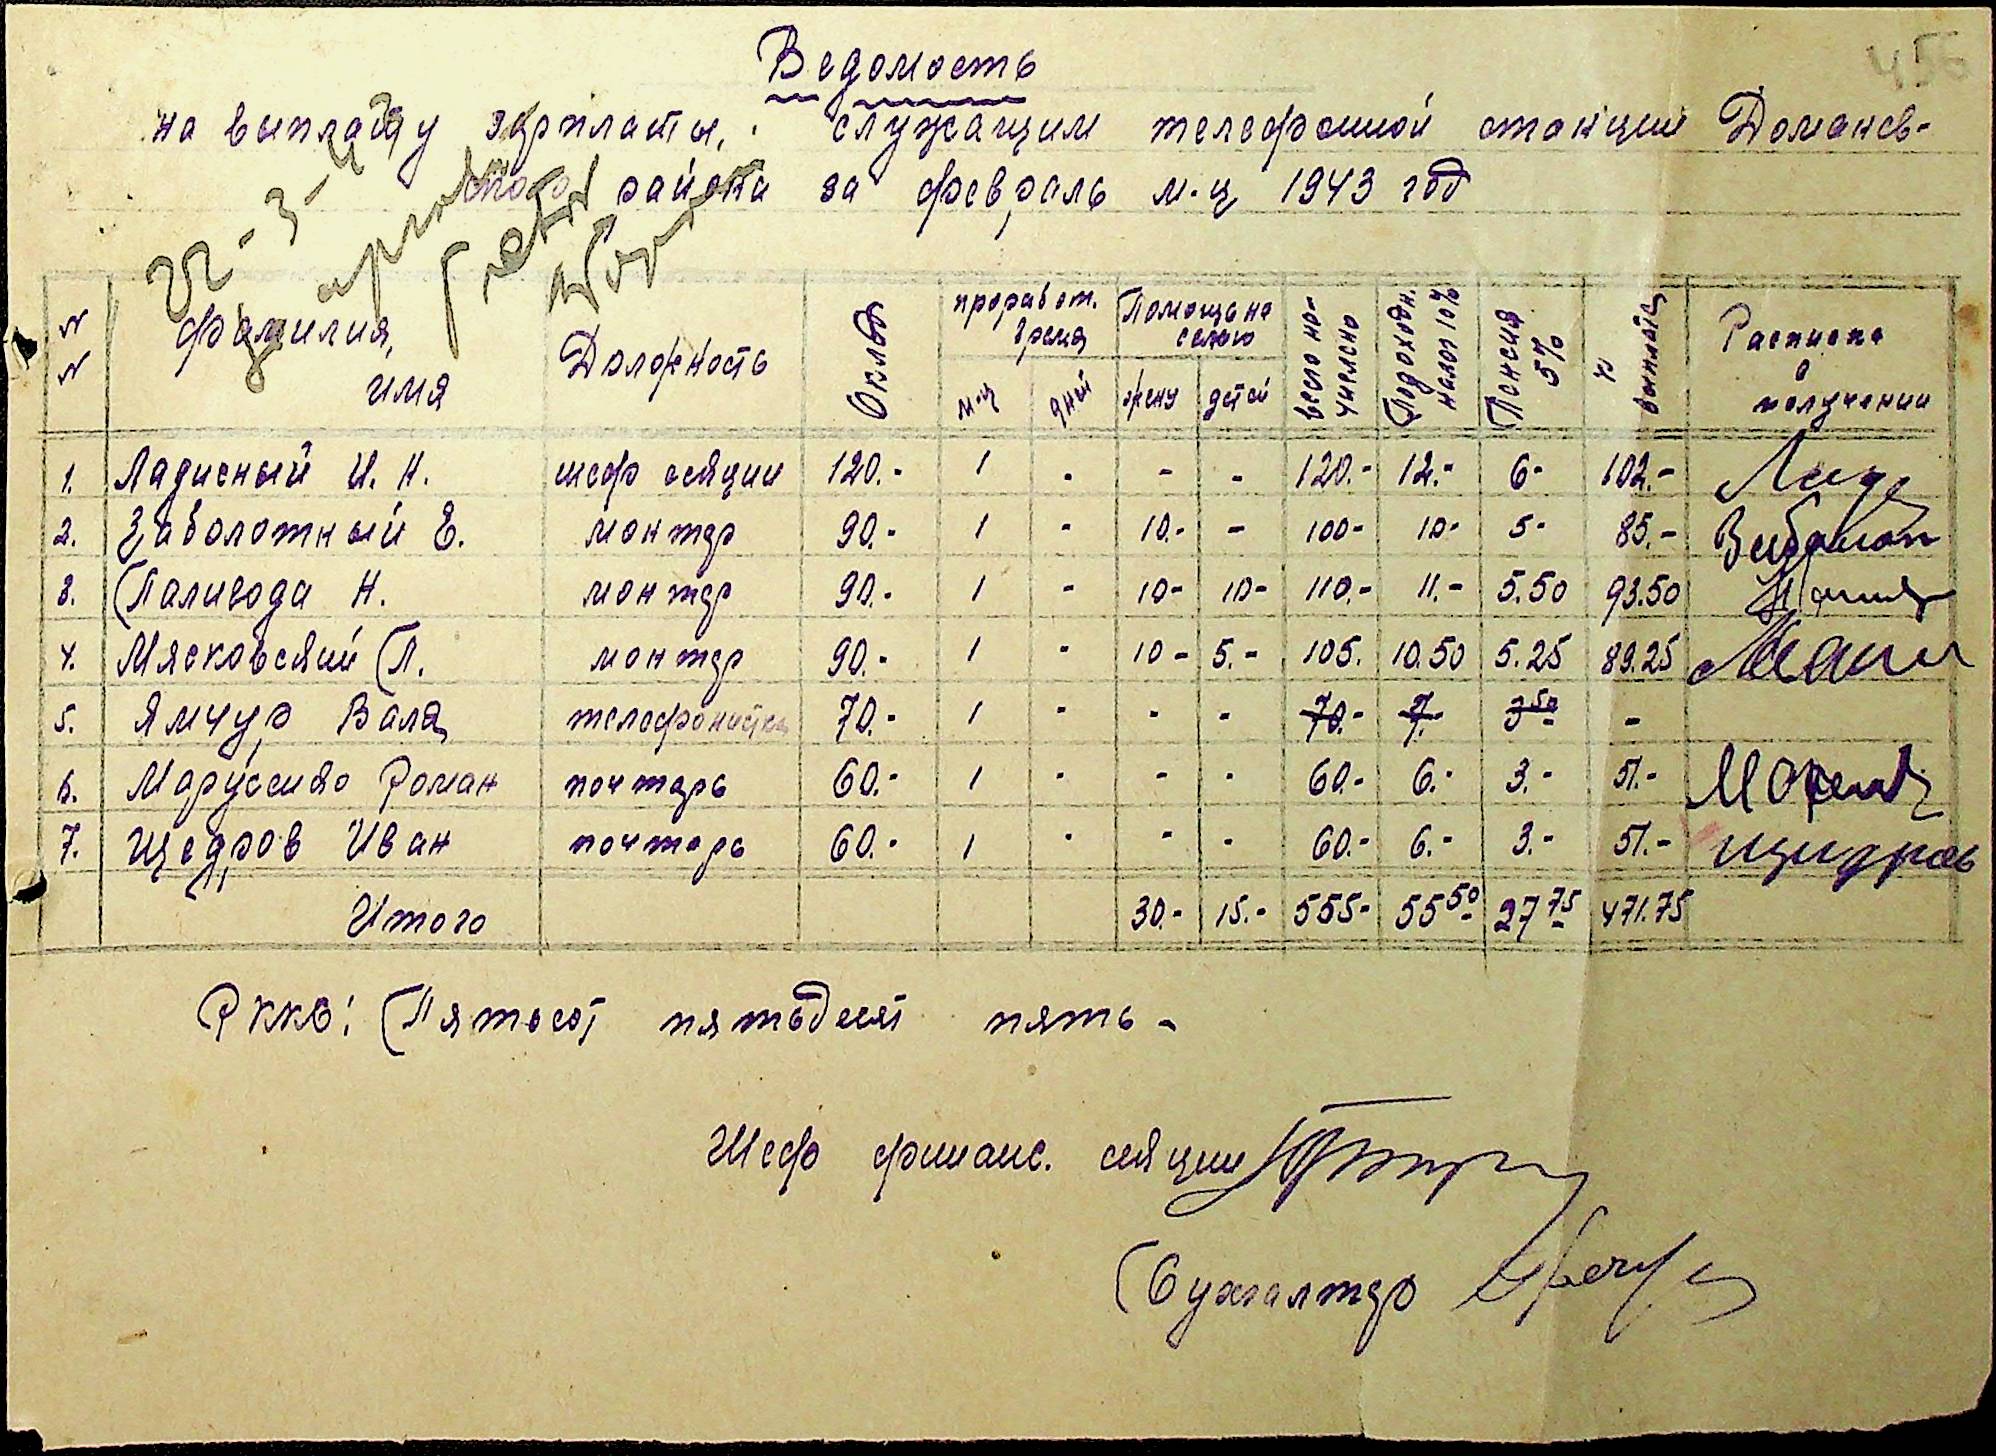 456
Ведомость
на выплату зарплаты, служащим телефонной станции Доманев-
ского района за февраль м-ц 1943 год
22-3-
N N | фамилия, имя | Должность | Оклад | проработ. время: м-ц, дней | Помощь на семью: жену, детей | всего начислено | Подоходн. налог 10% | Пенсия 5% | к выплате | Расписка о получении
1. Ладисный И. Н. шеф секции 120.- 1 - - - 120.- 12.- 6- 102.-
2. Заболотный Е. монтер 90.- 1 - 10.- - 100- 10- 5- 85.-
3. Палигода Н. монтер 90.- 1 - 10- 10- 110.- 11.- 5.50 93.50
4. Мясковский П. монтер 90.- 1 - 10- 5.- 105. 10.50 5.25 89.25
5. Ямчур Валя телефонистка 70.- 1 - - - 70.- 7.- 3 50 -
6. Марусенко Роман почтарь 60.- 1 - - - 60.- 6.- 3.- 51.-
7. Щедров Иван почтарь 60.- 1 - - - 60.- 6.- 3.- 51.-
Итого 30.- 15.- 555- 55 50 27 75 471.75
РККС: Пятьсот пятьдесят пять -
Шеф финанс. секции
Бухгалтер